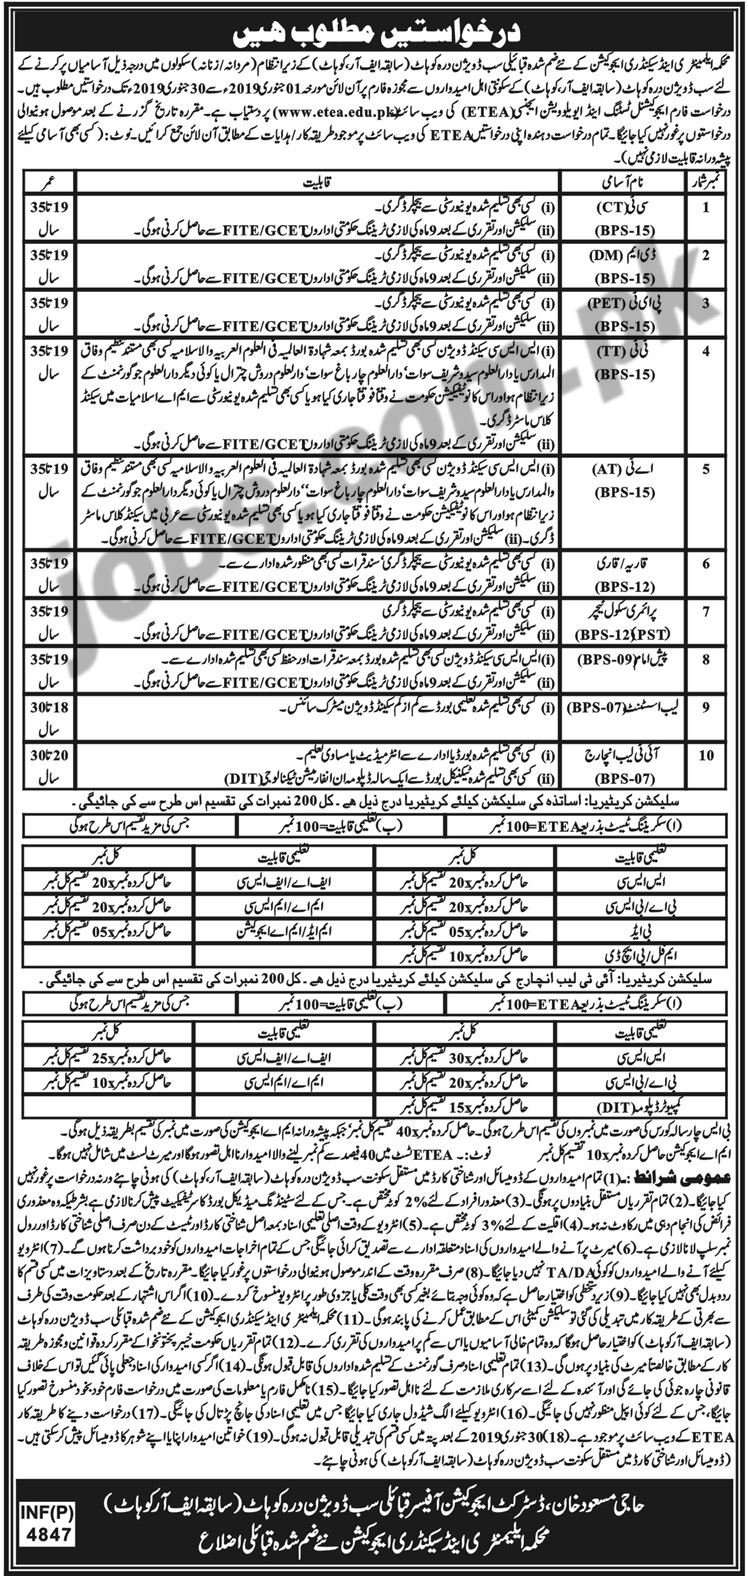 درخواستیں مطلوب ھیں
محکمہ ایلیمنٹری اینڈ سیکنڈری ایجوکیشن کے نئے ضم شدہ قبائلی سب ڈویژن درہ کوہاٹ (سابقہ ایف آر کوہاٹ) کے زیر انتظام (مردانہ/زنانہ) سکولوں میں درجہ ذیل آسامیاں پر کرنے کے
لئے سب ڈویژن درہ کوہاٹ (سابقہ ایف آر کوہاٹ) کے سکونتی اہل امیدواروں سے مجوزہ فارم پر آن لائن مورخہ 01 جنوری 2019ء سے 30 جنوری 2019ء تک درخواستیں مطلوب ہیں۔
درخواست فارم ایجوکیشنل ٹسٹنگ اینڈ ایویلویشن ایجنسی (ETEA) کی ویب سائٹ (www.etea.edu.pk) پر دستیاب ہے۔ مقررہ تاریخ گزرنے کے بعد موصول ہونیوالی
درخواستوں پر غور نہیں کیا جائیگا۔ تمام درخواست دہندہ اپنی درخواستیں ETEA کی ویب سائٹ پر موجود طریقہ کار/ہدایات کے مطابق آن لائن جمع کرائیں۔ نوٹ: (کسی بھی آسامی کیلئے
پیشہ ورانہ قابلیت لازمی نہیں)۔
نمبر شمار نام آسامی قابلیت عمر
1 سی ٹی (CT) (i) کسی بھی تسلیم شدہ یونیورسٹی سے بیچلر ڈگری۔ 19 تا 35
(BPS-15) (ii) سلیکشن اور تقرری کے بعد 9 ماہ کی لازمی ٹریننگ حکومتی اداروں FITE/GCET سے حاصل کرنی ہوگی۔ سال
2 ڈی ایم (DM) (i) کسی بھی تسلیم شدہ یونیورسٹی سے بیچلر ڈگری۔ 19 تا 35
(BPS-15) (ii) سلیکشن اور تقرری کے بعد 9 ماہ کی لازمی ٹریننگ حکومتی اداروں FITE/GCET سے حاصل کرنی ہوگی۔ سال
3 پی ای ٹی (PET) (i) کسی بھی تسلیم شدہ یونیورسٹی سے بیچلر ڈگری۔ 19 تا 35
(BPS-15) (ii) سلیکشن اور تقرری کے بعد 9 ماہ کی لازمی ٹریننگ حکومتی اداروں FITE/GCET سے حاصل کرنی ہوگی۔ سال
4 ٹی ٹی (TT) (i) ایس ایس سی سیکنڈ ڈویژن کسی بھی تسلیم شدہ بورڈ بمعہ شہادۃ العالمیہ فی العلوم العربیہ والاسلامیہ کسی بھی مستند تنظیم وفاق 19 تا 35
(BPS-15) المدارس یا دارالعلوم سیدو شریف سوات، دارالعلوم چارباغ سوات، دارالعلوم دروش چترال یا کوئی دیگر دارالعلوم جو گورنمنٹ کے سال
زیر انتظام ہو اور اس کا نوٹیفکیشن حکومت نے وقتاً فوقتاً جاری کیا ہو یا کسی بھی تسلیم شدہ یونیورسٹی سے ایم اے اسلامیات میں سیکنڈ
کلاس ماسٹر ڈگری۔
(ii) سلیکشن اور تقرری کے بعد 9 ماہ کی لازمی ٹریننگ حکومتی اداروں FITE/GCET سے حاصل کرنی ہوگی۔
5 اے ٹی (AT) (i) ایس ایس سی سیکنڈ ڈویژن کسی بھی تسلیم شدہ بورڈ بمعہ شہادۃ العالمیہ فی العلوم العربیہ والاسلامیہ کسی بھی مستند تنظیم وفاق 19 تا 35
(BPS-15) والمدارس یا دارالعلوم سیدو شریف سوات، دارالعلوم چارباغ سوات، دارالعلوم دروش چترال یا کوئی دیگر دارالعلوم جو گورنمنٹ کے سال
زیر انتظام ہو اور اس کا نوٹیفکیشن حکومت نے وقتاً فوقتاً جاری کیا ہو یا کسی بھی تسلیم شدہ یونیورسٹی سے عربی میں سیکنڈ کلاس ماسٹر
ڈگری۔ (ii) سلیکشن اور تقرری کے بعد 9 ماہ کی لازمی ٹریننگ حکومتی اداروں FITE/GCET سے حاصل کرنی ہوگی۔
6 قاریہ/قاری (i) کسی بھی تسلیم شدہ یونیورسٹی سے بیچلر ڈگری، سند قرات کسی بھی منظور شدہ ادارے سے۔ 19 تا 35
(BPS-12) (ii) سلیکشن اور تقرری کے بعد 9 ماہ کی لازمی ٹریننگ حکومتی اداروں FITE/GCET سے حاصل کرنی ہوگی۔ سال
7 پرائمری سکول ٹیچر (i) کسی بھی تسلیم شدہ یونیورسٹی سے بیچلر ڈگری 19 تا 35
(PST)(BPS-12) (ii) سلیکشن اور تقرری کے بعد 9 ماہ کی لازمی ٹریننگ حکومتی اداروں FITE/GCET سے حاصل کرنی ہوگی۔ سال
8 پیش امام (BPS-09) (i) ایس ایس سی سیکنڈ ڈویژن کسی بھی تسلیم شدہ بورڈ بمعہ سند قرات اور حفظ کسی بھی تسلیم شدہ ادارے سے۔ 19 تا 35
(ii) سلیکشن اور تقرری کے بعد 9 ماہ کی لازمی ٹریننگ حکومتی اداروں FITE/GCET سے حاصل کرنی ہوگی۔ سال
9 لیب اسسٹنٹ (BPS-07) (i) کسی بھی تسلیم شدہ تعلیمی بورڈ سے کم از کم سیکنڈ ڈویژن میٹرک سائنس۔ 18 تا 30
سال
10 آئی ٹی لیب انچارج (i) کسی بھی تسلیم شدہ بورڈ یا ادارے سے انٹرمیڈیٹ یا مساوی تعلیم۔ 20 تا 30
(BPS-07) (ii) کسی بھی تسلیم شدہ ٹیکنیکل بورڈ سے ایک سالہ ڈپلومہ ان انفارمیشن ٹیکنالوجی (DIT) سال
سلیکشن کریٹیریا: اساتذہ کی سلیکشن کیلئے کریٹیریا درج ذیل ھے۔ کل 200 نمبرات کی تقسیم اس طرح سے کی جائیگی۔
(ا) سکریننگ ٹیسٹ بذریعہ ETEA=100 نمبر (ب) تعلیمی قابلیت=100 نمبر جس کی مزید تقسیم اس طرح ہوگی
تعلیمی قابلیت کل نمبر تعلیمی قابلیت کل نمبر
ایس ایس سی حاصل کردہ نمبر 20x تقسیم کل نمبر ایف اے/ایف ایس سی حاصل کردہ نمبر 20x تقسیم کل نمبر
بی اے/بی ایس سی حاصل کردہ نمبر 20x تقسیم کل نمبر ایم اے/ایم ایس سی حاصل کردہ نمبر 20x تقسیم کل نمبر
بی ایڈ حاصل کردہ نمبر 05x تقسیم کل نمبر ایم ایڈ/ایم اے ایجوکیشن حاصل کردہ نمبر 05x تقسیم کل نمبر
ایم فل/پی ایچ ڈی حاصل کردہ نمبر 10x تقسیم کل نمبر
سلیکشن کریٹیریا: آئی ٹی لیب انچارج کی سلیکشن کیلئے کریٹیریا درج ذیل ھے۔ کل 200 نمبرات کی تقسیم اس طرح سے کی جائیگی۔
(ا) سکریننگ ٹیسٹ بذریعہ ETEA=100 نمبر (ب) تعلیمی قابلیت=100 نمبر جس کی مزید تقسیم اس طرح ہوگی
تعلیمی قابلیت کل نمبر تعلیمی قابلیت کل نمبر
ایس ایس سی حاصل کردہ نمبر 30x تقسیم کل نمبر ایف اے/ایف ایس سی حاصل کردہ نمبر 25x تقسیم کل نمبر
بی اے/بی ایس سی حاصل کردہ نمبر 20x تقسیم کل نمبر ایم اے/ایم ایس سی حاصل کردہ نمبر 10x تقسیم کل نمبر
کمپیوٹر ڈپلومہ (DIT) حاصل کردہ نمبر 15x تقسیم کل نمبر
بی ایس چار سالہ کورس کی صورت میں نمبروں کی تقسیم اس طرح ہوگی۔ حاصل کردہ نمبر 40x تقسیم کل نمبر، جبکہ پیشہ ورانہ ایم اے ایجوکیشن کی صورت میں نمبر کی تقسیم بطریقہ ذیل ہوگی۔
ایم اے ایجوکیشن حاصل کردہ نمبر 10x تقسیم کل نمبر نوٹ:۔ ETEA ٹسٹ میں 40 فیصد سے کم نمبر لینے والا امیدوار نااہل تصور ہوگا اور میرٹ لسٹ میں شامل نہیں ہوگا۔
عمومی شرائط:۔ (1) تمام امیدواروں کے ڈومیسائل اور شناختی کارڈ میں مستقل سکونت سب ڈویژن درہ کوہاٹ (سابقہ ایف آر کوہاٹ) کی ہونی چاہئے ورنہ درخواست پر غور نہیں
کیا جائیگا۔ (2) تمام تقرریاں مستقل بنیادوں پر ہونگی۔ (3) معذور افراد کے لئے 2% کوٹہ مختص ہے۔ جس کے لئے سٹینڈنگ میڈیکل بورڈ کا سرٹیفکیٹ پیش کرنا لازمی ہے بشرطیکہ وہ معذوری
فرائض کی انجام دہی میں رکاوٹ نہ ہو۔ (4) اقلیت کے لئے 3% کوٹہ مختص ہے۔ (5) انٹرویو کے وقت اصلی تعلیمی اسناد بمعہ اصل شناختی کارڈ اور ٹیسٹ کے دن صرف اصلی شناختی کارڈ اور رول
نمبر سلپ لانا لازمی ہے۔ (6) میرٹ پر آنے والے امیدواروں کی اسناد متعلقہ ادارے سے تصدیق کرائی جائیگی جس کے تمام اخراجات امیدواروں کو خود برداشت کرنا ہوں گے۔ (7) انٹرویو
کیلئے آنے والے امیدواروں کو کوئی TA/DA نہیں دیا جائیگا۔ (8) صرف مقررہ وقت کے اندر موصول ہونیوالی درخواستوں پر غور کیا جائیگا۔ مقررہ تاریخ کے بعد دستاویزات میں کسی قسم کا
ردوبدل بھی نہیں کیا جائیگا۔ (9) زیر دستخطی کو اختیار حاصل ہے کہ وہ کوئی وجہ بتائے بغیر کسی بھی وقت کلی یا جزوی طور پر انٹرویو منسوخ کردے۔ (10) اگر اس اشتہار کے بعد حکومت وقت کی طرف
سے بھرتی کے طریقہ کار میں تبدیلی کی گئی تو سلیکشن کمیٹی اس کے مطابق عمل کرنے کی پابند ہوگی۔ (11) محکمہ ایلیمنٹری اینڈ سیکنڈری ایجوکیشن کے نئے ضم شدہ قبائلی سب ڈویژن درہ کوہاٹ
(سابقہ ایف آر کوہاٹ) کو اختیار حاصل ہوگا کہ وہ تمام خالی آسامیوں یا اس سے کم پر امیدواروں کی تقرری کرے۔ (12) تمام تقرریاں حکومت خیبر پختونخوا کے مقرر کردہ قوانین و مجوزہ طریقہ
کار کے مطابق خالصتاً میرٹ کی بنیاد پر ہوں گی۔ (13) تمام تعلیمی اسناد صرف گورنمنٹ کے تسلیم شدہ اداروں کی قابل قبول ہونگی۔ (14) اگر کسی امیدوار کی اسناد جعلی پائی گئیں تو اس کے خلاف
قانونی چارہ جوئی کی جائے گی اور آئندہ کے لئے اسے سرکاری ملازمت کے لئے نااہل تصور کیا جائیگا۔ (15) نامکمل فارم یا معلومات کی صورت میں درخواست فارم خود بخود منسوخ تصور کیا
جائیگا، جس کے لئے کوئی اپیل منظور نہیں کی جائیگی۔ (16) انٹرویو کیلئے الگ شیڈول جاری کیا جائیگا جس میں تعلیمی اسناد کی جانچ پڑتال کی جائیگی۔ (17) درخواست دینے کا طریقہ کار
ETEA کے ویب سائٹ پر موجود ہے۔ (18) 30 جنوری 2019 کے بعد پتہ میں کسی قسم کی تبدیلی قابل قبول نہ ہوگی۔ (19) خواتین امیدوار اپنا یا اپنے شوہر کا ڈومیسائل پیش کر سکتی ہیں۔
(ڈومیسائل اور شناختی کارڈ میں مستقل سکونت سب ڈویژن درہ کوہاٹ (سابقہ ایف آر کوہاٹ) کی ہونی چاہئے۔
حاجی مسعود خان، ڈسٹرکٹ ایجوکیشن آفیسر قبائلی سب ڈویژن درہ کوہاٹ (سابقہ ایف آر کوہاٹ)
محکمہ ایلیمنٹری اینڈ سیکنڈری ایجوکیشن نئے ضم شدہ قبائلی اضلاع
INF(P)
4847
jobs.com.pk